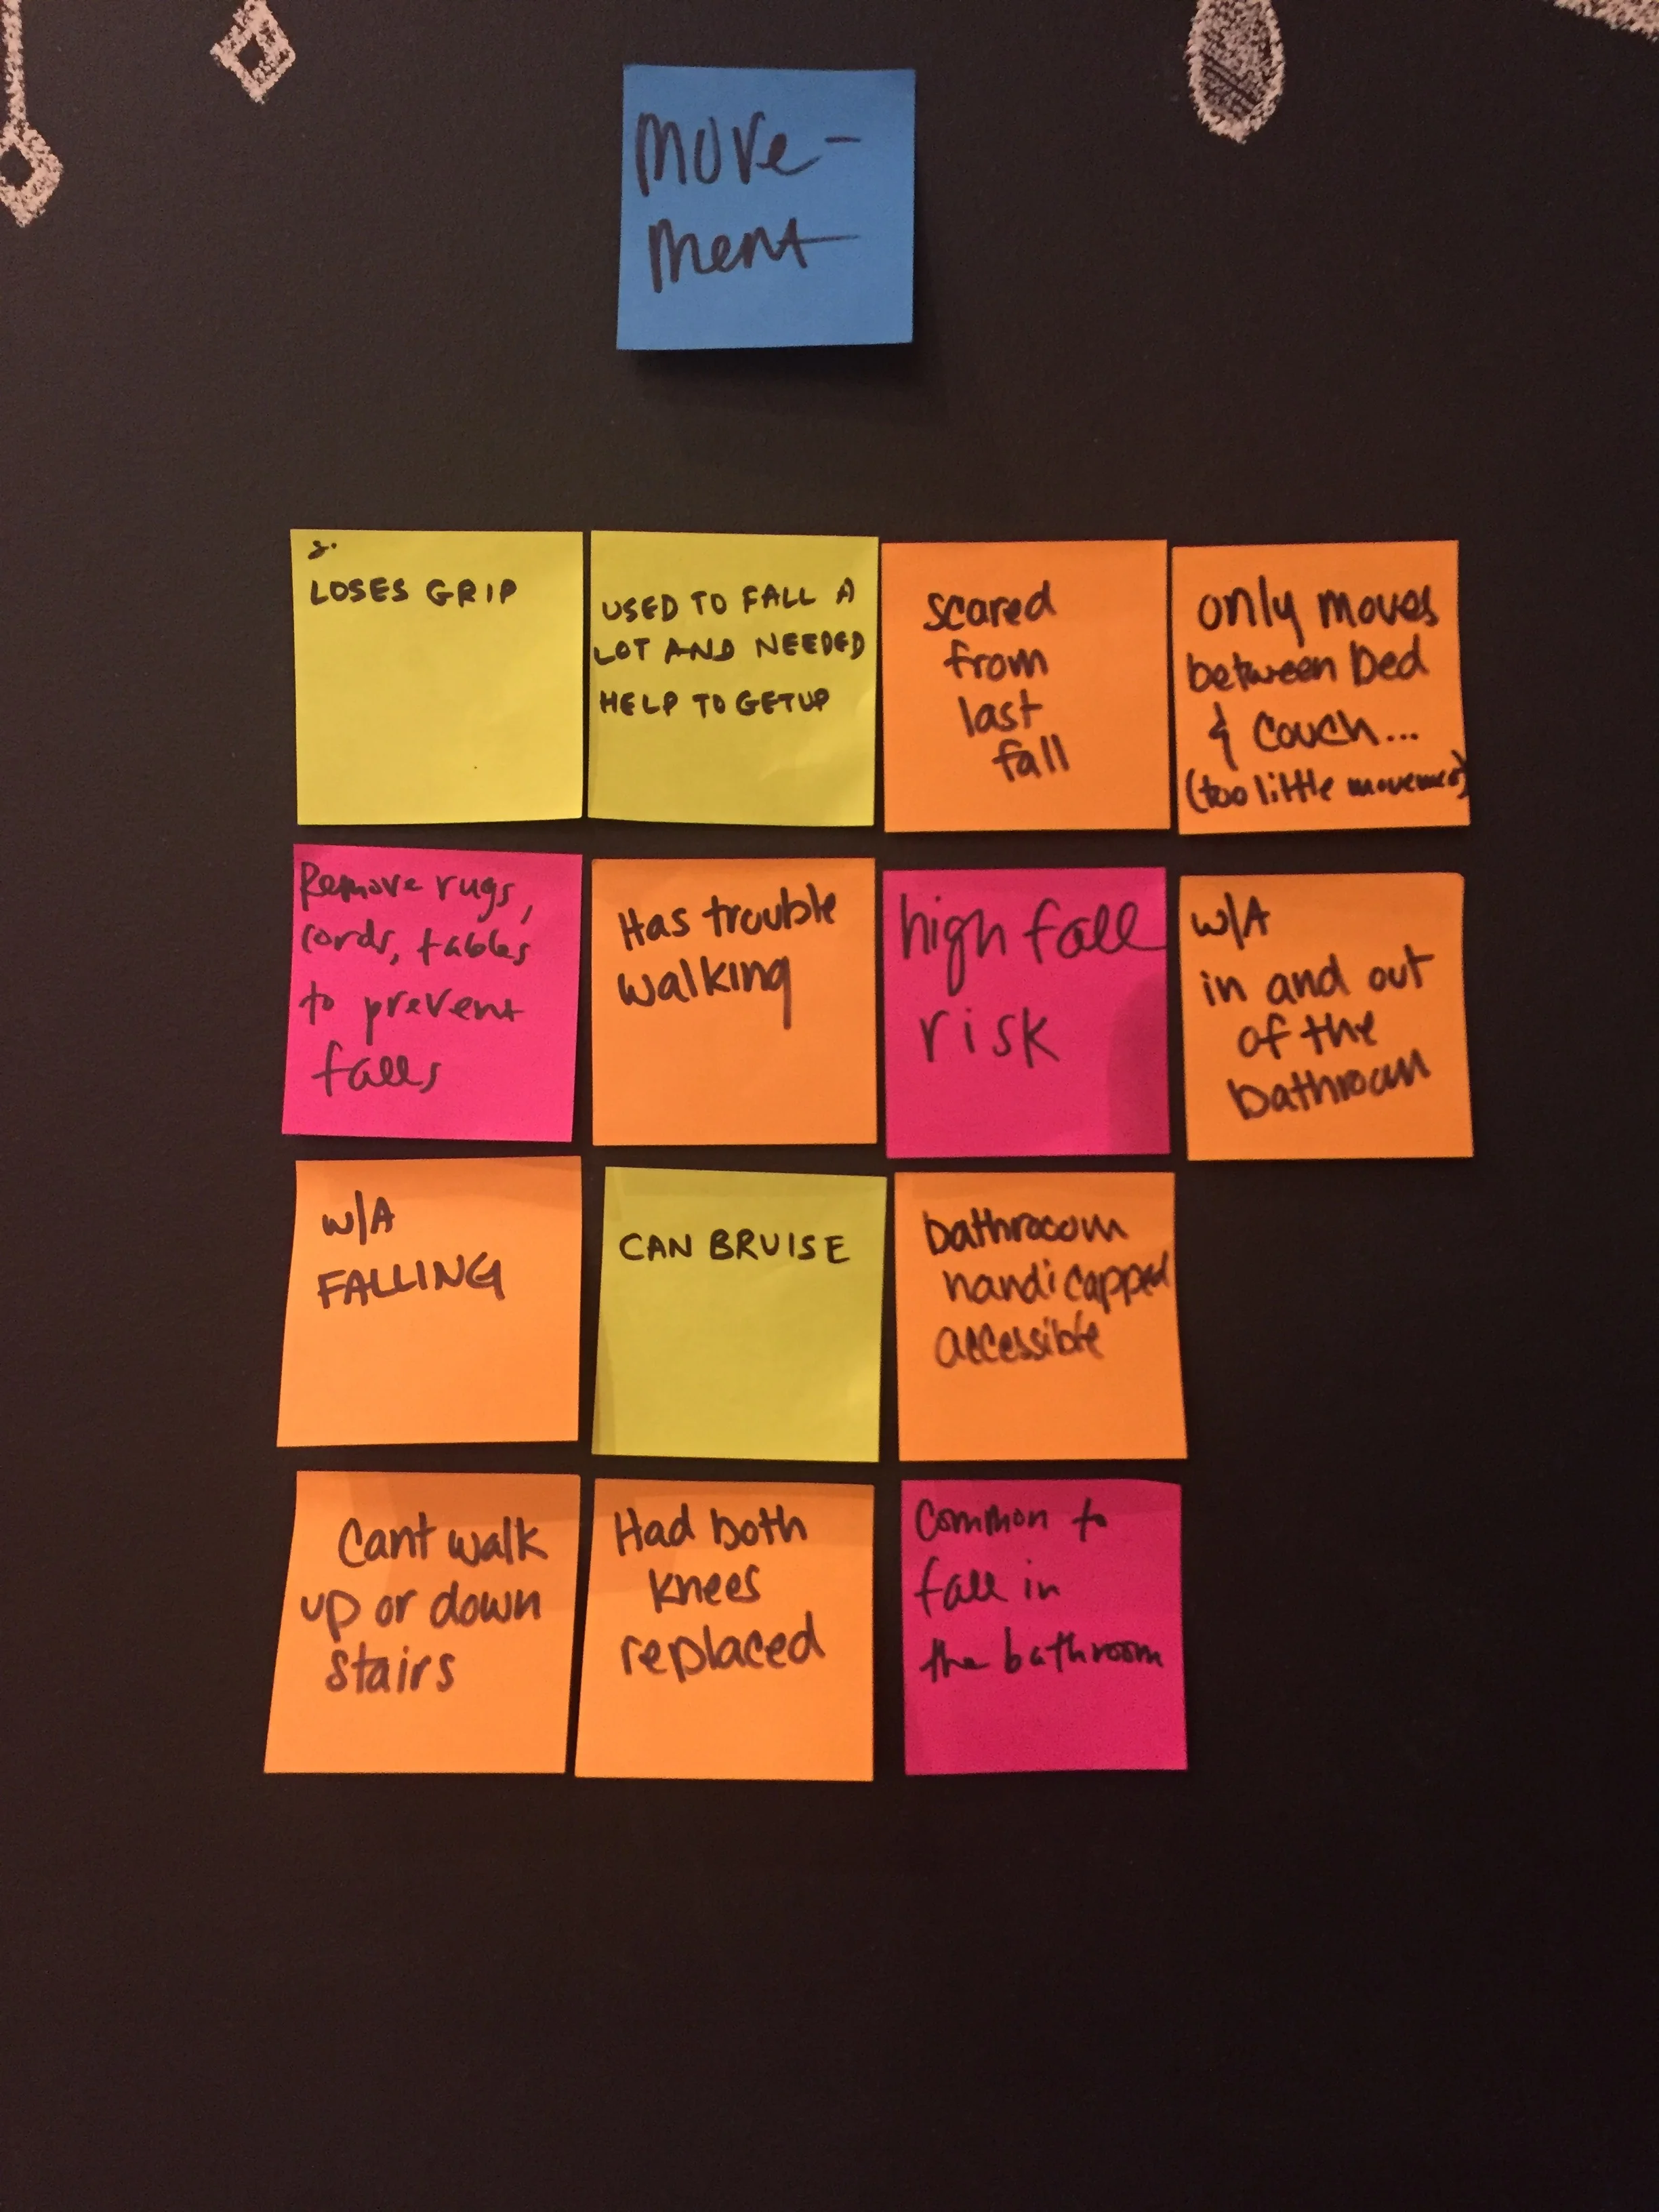 Move-
ment
LOSES GRIP
USED TO FALL A
LOT AND NEEDED
HELP TO GETUP
scared
from
last
fall
only moves
between bed
& couch...
(too little movement)
Remove rugs,
cords, tables
to prevent
falls
Has trouble
walking
high fall
risk
w/A
in and out
of the
bathroom
w/A
FALLING
CAN BRUISE
bathroom
handicapped
accessible
Cant walk
up or down
stairs
Had both
knees
replaced
Common to
fall in
the bathroom